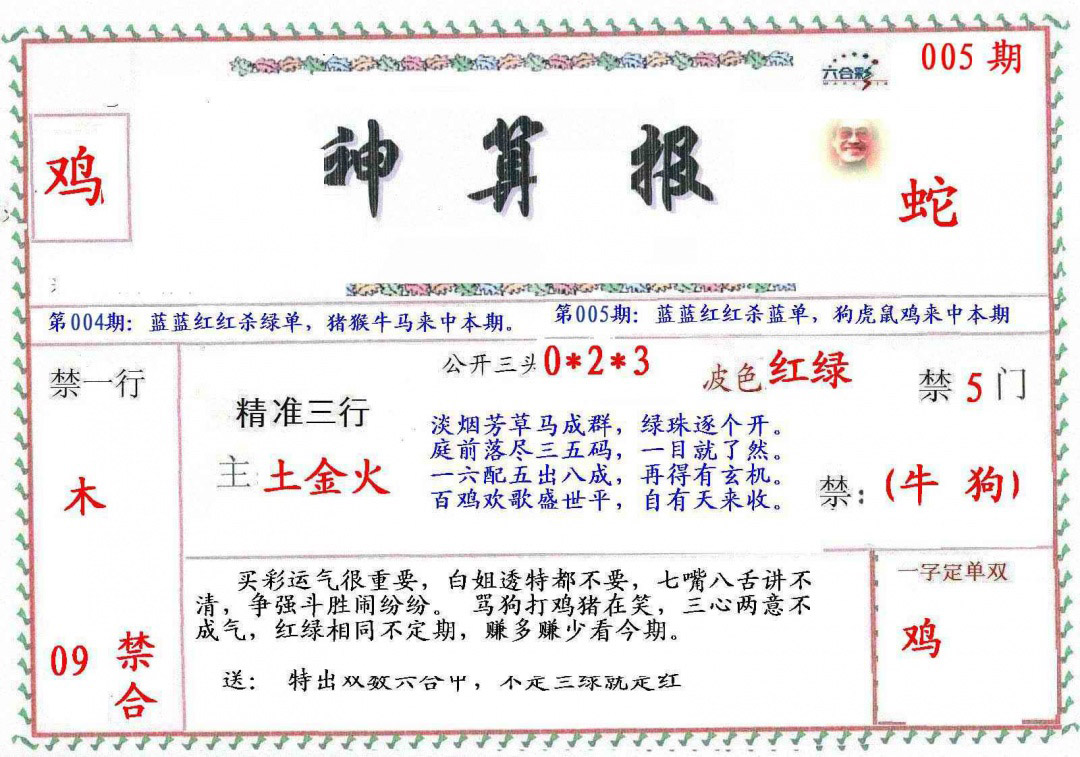 六合彩
005 期
鸡
神算报
蛇
第004期：蓝蓝红红杀绿单，猪猴牛马来中本期。
第005期：蓝蓝红红杀蓝单，狗虎鼠鸡来中本期
禁一行
木
09
禁合
公开三头 0*2*3
波色 红绿
精准三行
主 土金火
淡烟芳草马成群，绿珠逐个开。
庭前落尽三五码，一目就了然。
一六配五出八成，再得有玄机。
百鸡欢歌盛世平，自有天来收。
禁 5 门
禁：(牛 狗)
买彩运气很重要，白姐透特都不要，七嘴八舌讲不
清，争强斗胜闹纷纷。 骂狗打鸡猪在笑，三心两意不
成气，红绿相同不定期，赚多赚少看今期。
送： 特出双数六合中，不是三绿就是红
一字定单双
鸡